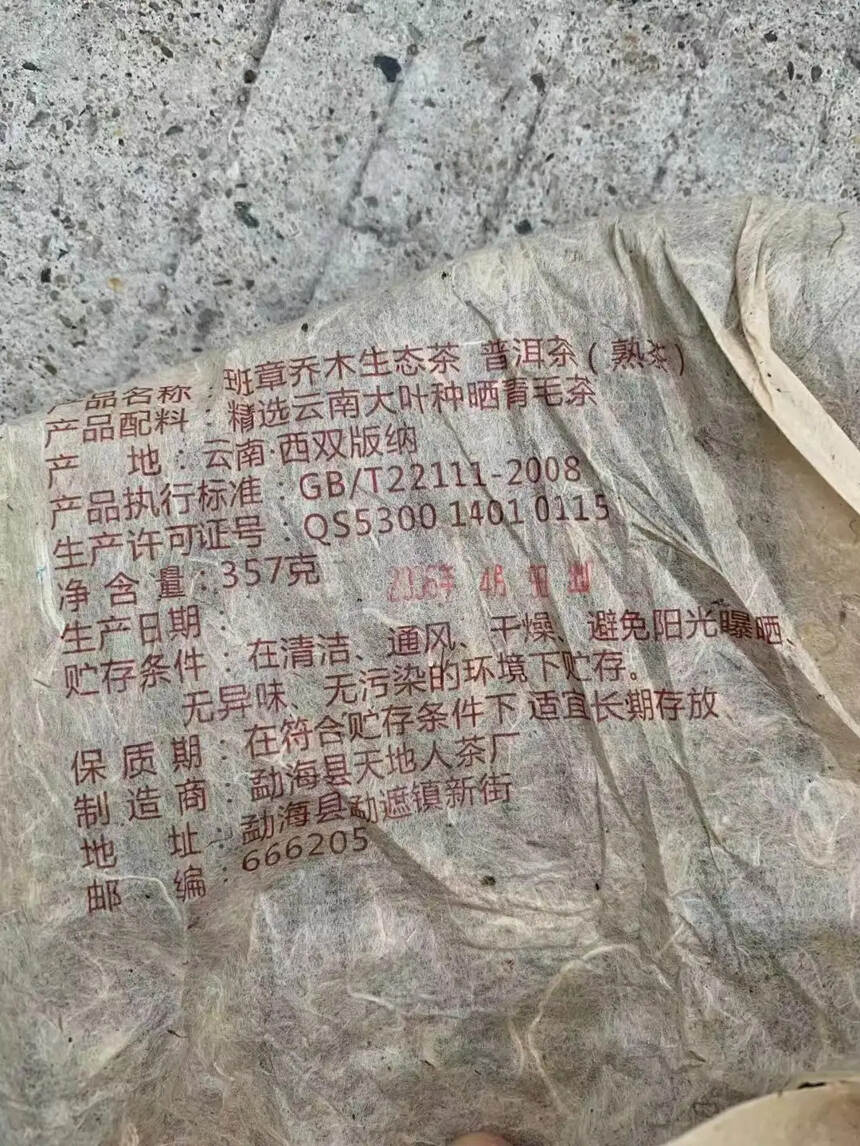 产品名称：班章乔木生态茶 普洱茶(熟茶)
产品配料：精选云南大叶种晒青毛茶
产 地：云南·西双版纳
产品执行标准：GB/T22111-2008
生产许可证号：QS5300 1401 0115
净含量：357克
生产日期：
贮存条件：在清洁、通风、干燥、避免阳光曝晒、
无异味、无污染的环境下贮存。
保质期：在符合贮存条件下适宜长期存放
制造商：勐海县天地人茶厂
地 址：勐海县勐遮镇新街
邮 编：666205